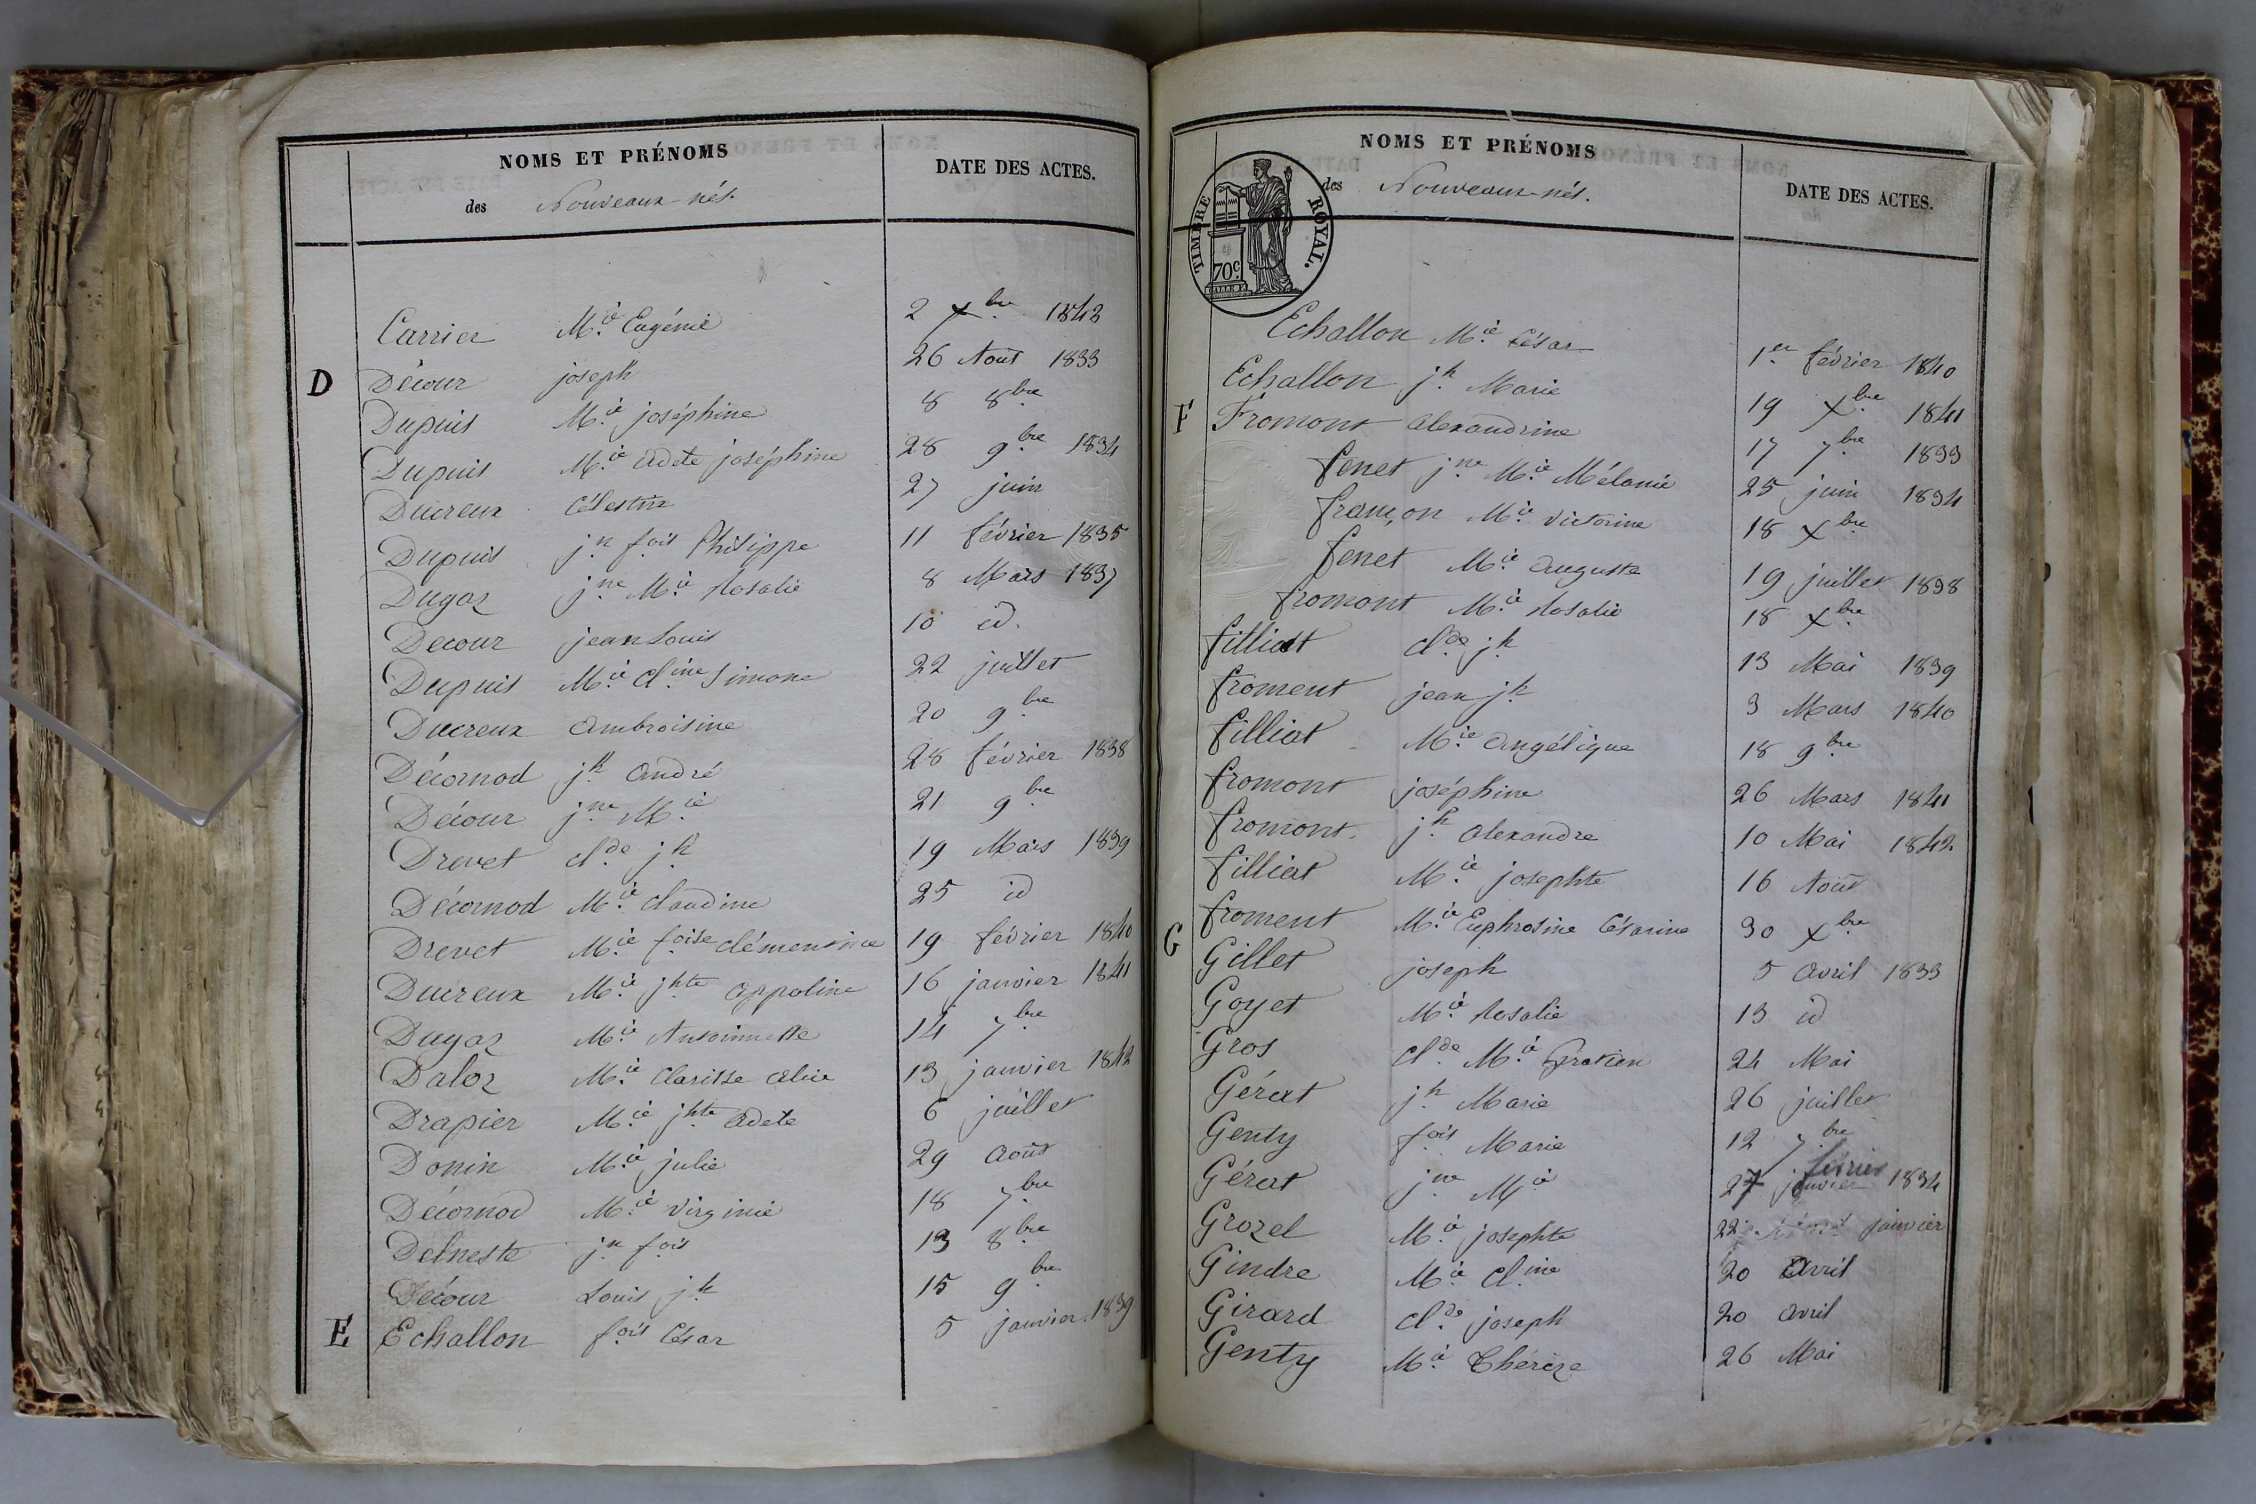 NOMS ET PRÉNOMS
des Nouveaux-nés.
DATE DES ACTES.
Carrier M.ie Eugénie 2 Xbre 1842
D Décour joseph 26 Août 1833
Dupuis M.ie joséphine 8 8bre
Dupuis M.ie Adele joséphine 28 9bre 1834
Ducreux Célestin 27 juin
Dupuis j.n f.ois Philippe 11 février 1835
Dugaz j.ne M.ie Rosalie 8 Mars 1837
Decour jean Louis 10 id.
Dupuis M.ie Cl.ine Simone 22 juillet
Ducreux Ambroisine 20 9bre
Décornod j.h André 28 février 1838
Décour j.ne M.ie 21 9bre
Drevet cl.de j.h 19 Mars 1839
Décornod M.ie Claudine 25 id
Drevet M.ie f.oise clémentine 19 février 1840
Ducreux M.ie j.hte Appoline 16 janvier 1841
Dugaz M.ie Antoinette 14 7bre
Daloz M.ie Clarisse Alice 13 janvier 1842
Drapier M.ie j.hte Adele 6 juillet
Donin M.ie julie 29 Août
Décornod M.ie Virginie 18 7bre
Delneste j.n f.ois 13 8bre
Décour Louis j.h 15 9bre
E Echallon f.ois César 5 janvier 1839
NOMS ET PRÉNOMS
des Nouveaux-nés.
DATE DES ACTES.
TIMBRE ROYAL.
70c.
Echallon M.ie César 1.er février 1840
Echallon j.h Marie 19 Xbre 1841
F Fromont Alexandrine 17 7bre 1833
fenet j.ne M.ie Mélanie 25 juin 1834
françon M.ie Victorine 18 Xbre
fenet M.ie Auguste 19 juillet 1838
fromont M.ie Rosalie 18 Xbre
filliat Cl.de j.h 13 Mai 1839
froment jean j.h 3 Mars 1840
filliat M.ie Angélique 18 9bre
fromont joséphine 26 Mars 1841
fromont j.h Alexandre 10 Mai 1842
filliat M.ie josephte 16 Août
froment M.ie Euphrosine Césarine 30 Xbre
G Gillet joseph 5 Avril 1833
Goyet M.ie Rosalie 13 id
Gros Cl.de M.ie Gratien 24 Mai
Gérat j.h Marie 26 juillet
Genty f.ois Marie 12 7bre
Gérat j.ne M.ie 27 janvier février 1834
Grozel M.ie josephte 22 janvier
Gindre M.ie Cl.ine 20 Avril
Girard Cl.de joseph 20 Avril
Genty M.ie Thérèze 26 Mai